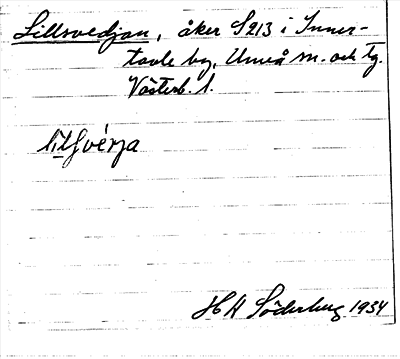 Lillsvedjan, åker S213 i Inner-
tavle by, Umeå sn. och tg.
Västerb. l.
HH Söderberg 1934